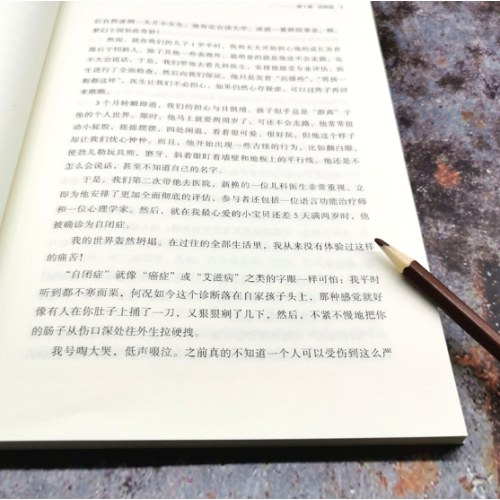 然而，就在我们的儿子1岁半时，我和太太开始担心他的成长发育
落后于同龄人。除了其他一些表现外，最明显的就是他还不会走路，也
不大会说话。于是，我们带他去看儿医生，
年进行了全面检查。然后向我们保证，他只是发育“迟缓些”，“男孩
都这样”。医生让我们不必担心，如果仍然心存疑惑，可以过阵子再回
来瞧瞧。
3个月转瞬即逝，我们的担心与日俱增。孩子似乎总是“游离”于
他的个人世界。那时，他马上就要两周岁了，可还不会走路。他常常扭
动小屁股，摇摇摆摆，四处闲逛，看着很可爱、很好玩，但他这个样子
却让我们忧心忡忡。而且，他开始出现一些古怪的行为，比如翻白眼、
使劲儿晃玩具熊、磨牙、斜着眼盯着墙壁和地板上的平行线。他还是不
怎么会说话，甚至不知道自己的名字。
于是，我们第二次带他去医院，新换的一位儿科医生非常重视，立
即为他安排了更加全面彻底的评估，参与者还包括一位语言功能治疗师
和一位心理学家。然后，就在我最心爱的小宝贝还差3天满两岁时，他
被确诊为自闭症。
我的世界轰然坍塌。在过往的全部生活里，我从来没有体验过这样
的痛苦！
“自闭症”就像“癌症”或“艾滋病”之类的字眼一样可怕：我平时
听到都不寒而栗，何况如今这个诊断落在自家孩子头上，那种感觉就好
像有人在你肚子上捅了一刀，又狠狠剜了几下，然后，不紧不慢地把你
的肠子从伤口深处往外生拉硬拽。
我号啕大哭，低声啜泣。之前真的不知道一个人可以受伤到这么严